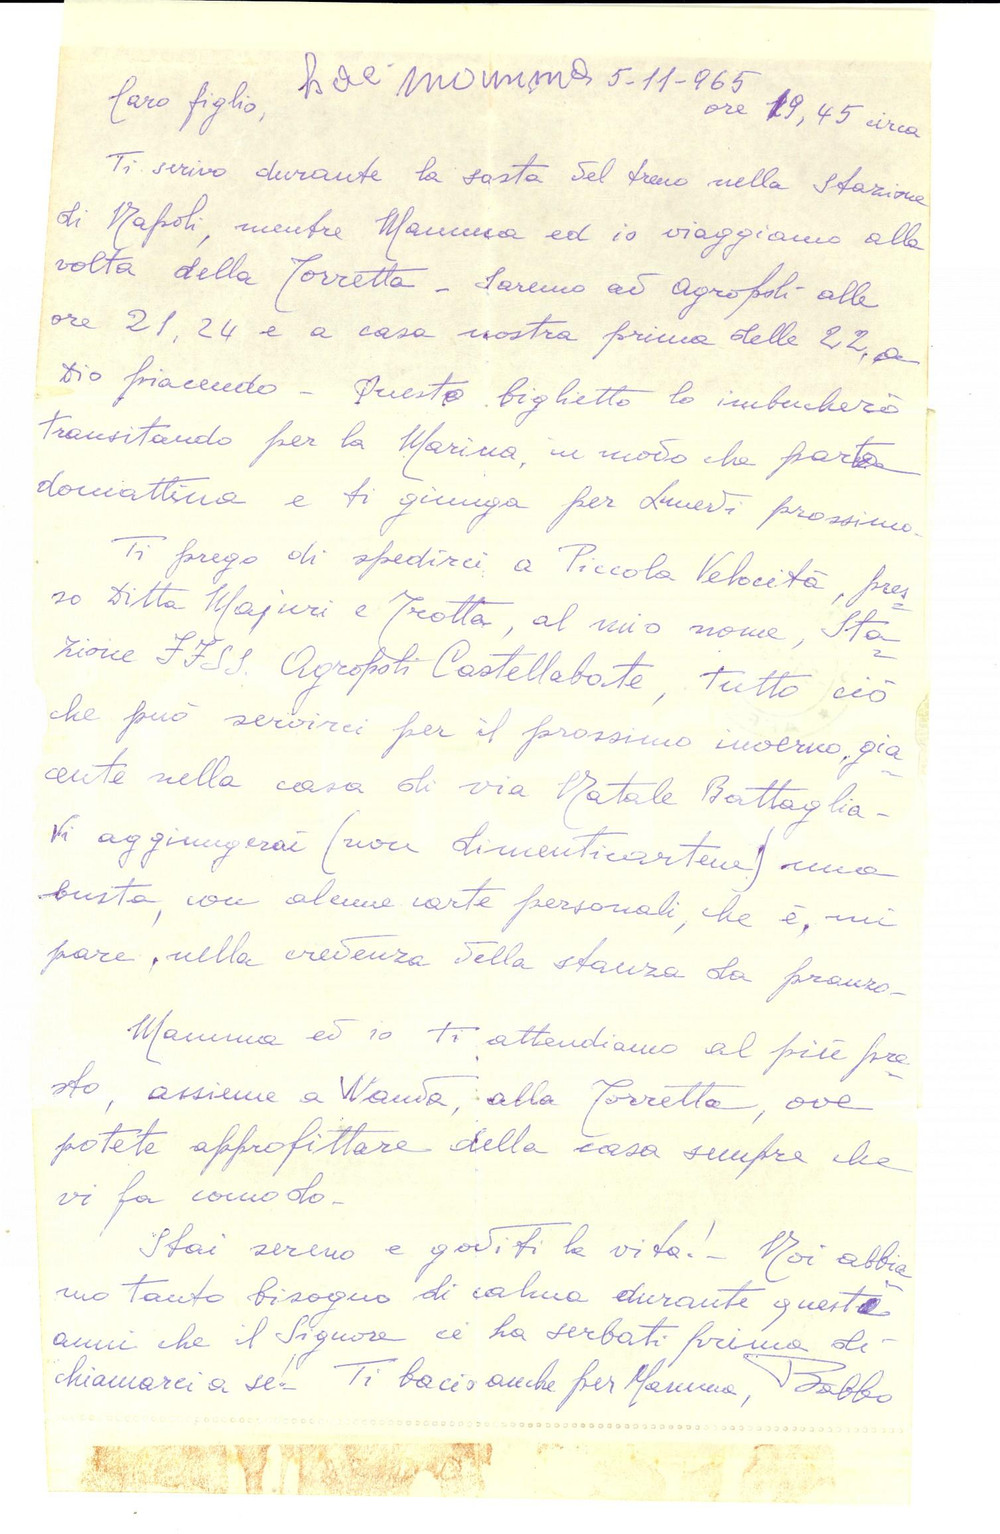 baci mamma 5-11-965
Caro figlio,
ore 19,45 circa
Ti scrivo durante la sosta del treno nella Stazione
di Napoli, mentre Mamma ed io viaggiamo alla
volta della Torretta - Saremo ad Agropoli alle
ore 21,24 e a casa nostra prima delle 22, a
Dio piacendo - Questo biglietto lo imbucherò
transitando per la Marina, in modo che parta
domattina e ti giunga per Lunedì prossimo.
Ti prego di spedirci a Piccola Velocità, pres=
so Ditta Majuri e Trotta, al mio nome, Sta=
zione FFSS. Agropoli Castellabate, tutto ciò
che può servirci per il prossimo inverno, gia-
cente nella casa di via Natale Battaglia -
Vi aggiungerai (non dimenticartene!) una
busta, con alcune carte personali, che è, mi
pare, nella credenza della stanza da pranzo -
Mamma ed io ti attendiamo al più pre=
sto, assieme a Wanda, alla Torretta, ove
potete approfittare della casa sempre che
vi fa comodo -
Stai sereno e goditi la vita! - Noi abbia=
mo tanto bisogno di calma durante questi
anni che il Signore ci ha serbati prima di
chiamarci a sé! - Ti bacio anche per Mamma, Babbo